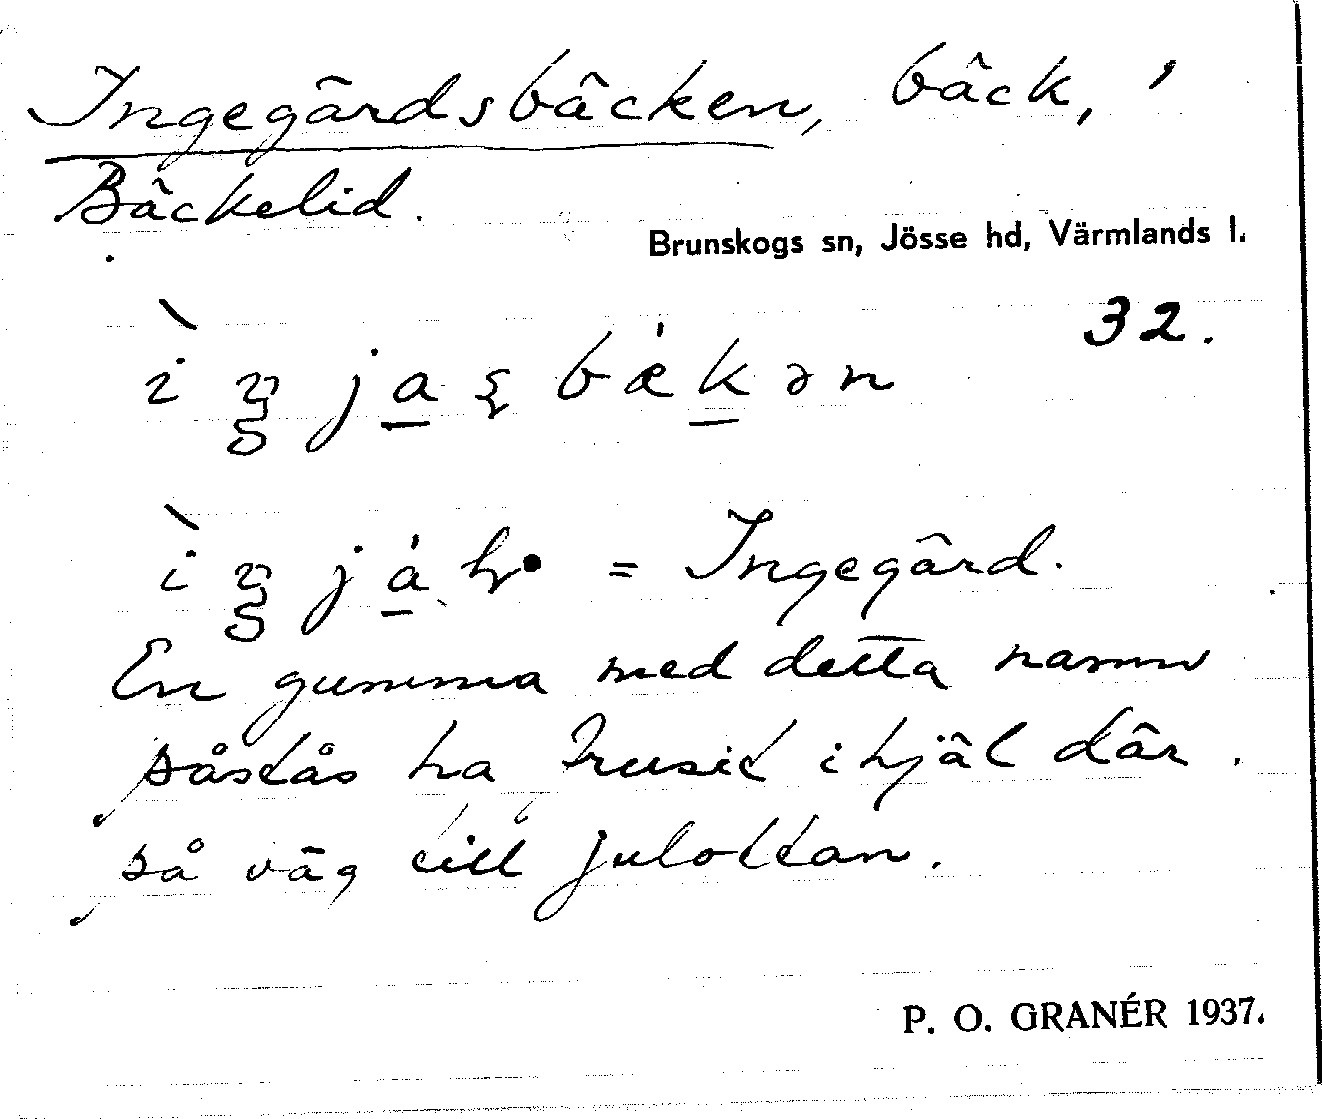 Ingegärdsbäcken, bäck, '
Bäckelid.
Brunskogs sn, Jösse hd, Värmlands l.
32.
= Ingegärd.
En gumma med detta namn
påstås ha frusit ihjäl där
på väg till julottan.
P. O. GRANÉR 1937.